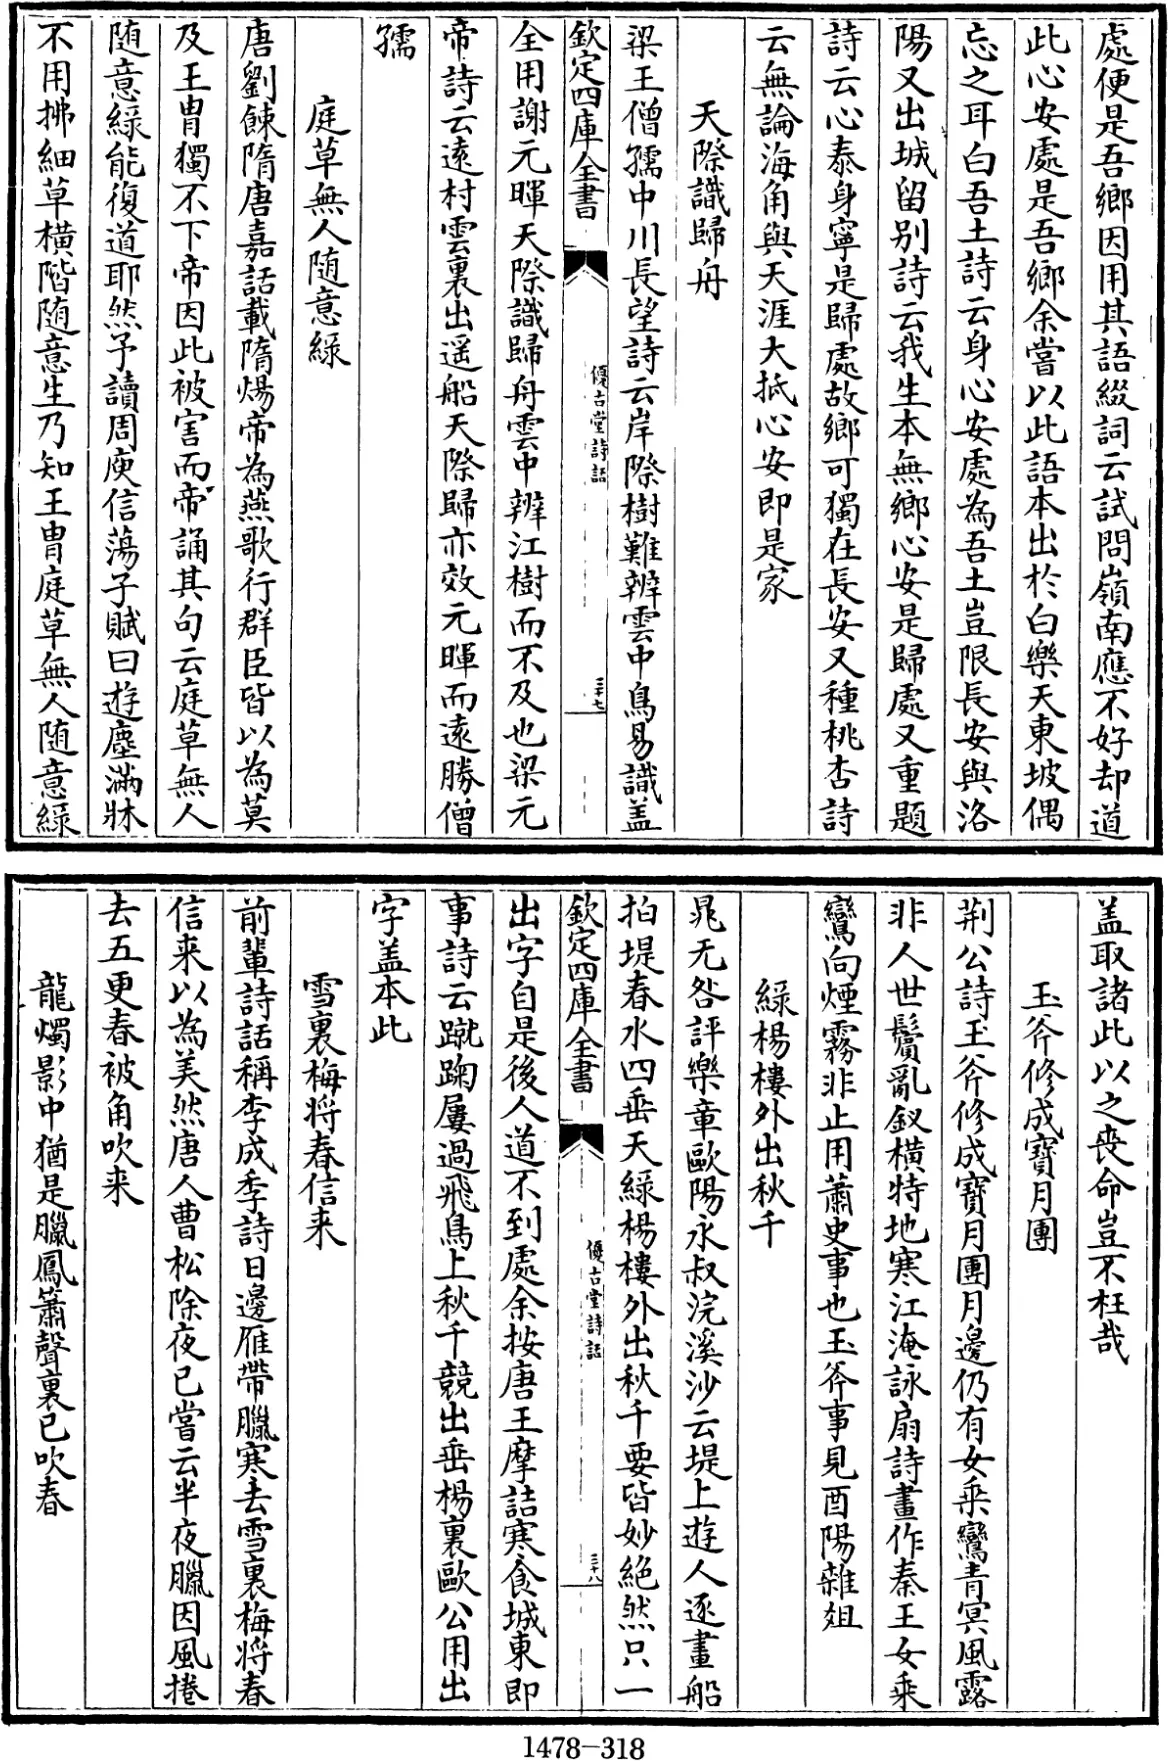 處便是吾鄉因用其語綴詞云試問嶺南應不好却道
此心安處是吾鄉余嘗以此語本出於白樂天東坡偶
忘之耳白吾土詩云身心安處為吾土豈限長安與洛
陽又出城留别詩云我生本無鄉心安是歸處又重題
詩云心泰身寧是歸處故鄉可獨在長安又種桃杏詩
云無論海角與天涯大抵心安即是家
天際識歸舟
梁王僧孺中川長望詩云岸際樹難辨雲中鳥易識盖
欽定四庫全書
優古堂詩話
三十七
全用謝元暉天際識歸舟雲中辨江樹而不及也梁元
帝詩云遠村雲裏出遥船天際歸亦效元暉而遠勝僧
孺
庭草無人随意緑
唐劉餗隋唐嘉話載隋煬帝為燕歌行群臣皆以為莫
及王胄獨不下帝因此被害而帝誦其句云庭草無人
随意緑能復道耶然予讀周庾信蕩子賦曰遊塵滿牀
不用拂細草横階随意生乃知王胄庭草無人随意緑
盖取諸此以之喪命豈不枉哉
玉斧修成寳月團
荆公詩玉斧修成寳月團月邊仍有女乘鸞青冥風露
非人世鬢亂釵横特地寒江淹詠扇詩畫作秦王女乘
鸞向煙霧非止用蕭史事也玉斧事見酉陽雜俎
緑楊樓外出秋千
晁无咎評樂章歐陽永叔浣溪沙云堤上遊人逐畫船
拍堤春水四垂天緑楊樓外出秋千要皆妙絶然只一
欽定四庫全書
優古堂詩話
三十八
出字自是後人道不到處余按唐王摩詰寒食城東即
事詩云蹴踘屢過飛鳥上秋千競出垂楊裏歐公用出
字盖本此
雪裏梅将春信来
前輩詩話稱李成季詩日邊雁帶臘寒去雪裏梅将春
信来以為美然唐人曹松除夜已嘗云半夜臘因風捲
去五更春被角吹来
龍燭影中猶是臘鳳簫聲裏已吹春
1478-318